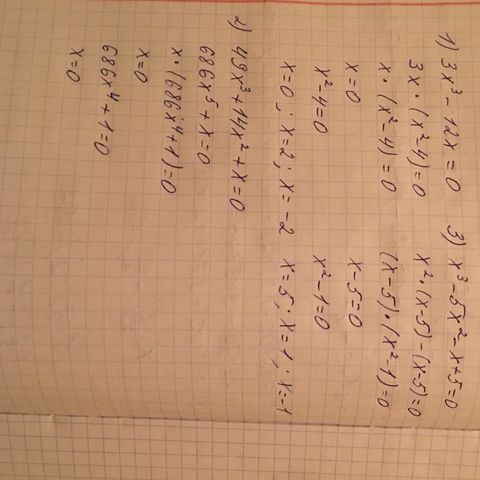 1) 3x³ - 12x = 0
3x · (x² - 4) = 0
x · (x² - 4) = 0
x = 0
x² - 4 = 0
x = 0 ; x = 2 ; x = -2
2) 49x³ + 14x² + x = 0
686x⁵ + x = 0
x · (686x⁴ + 1) = 0
x = 0
686x⁴ + 1 = 0
x = 0
3) x³ - 5x² - x + 5 = 0
x² · (x - 5) - (x - 5) = 0
(x - 5) · (x² - 1) = 0
x - 5 = 0
x² - 1 = 0
x = 5 ; x = 1 ; x = -1